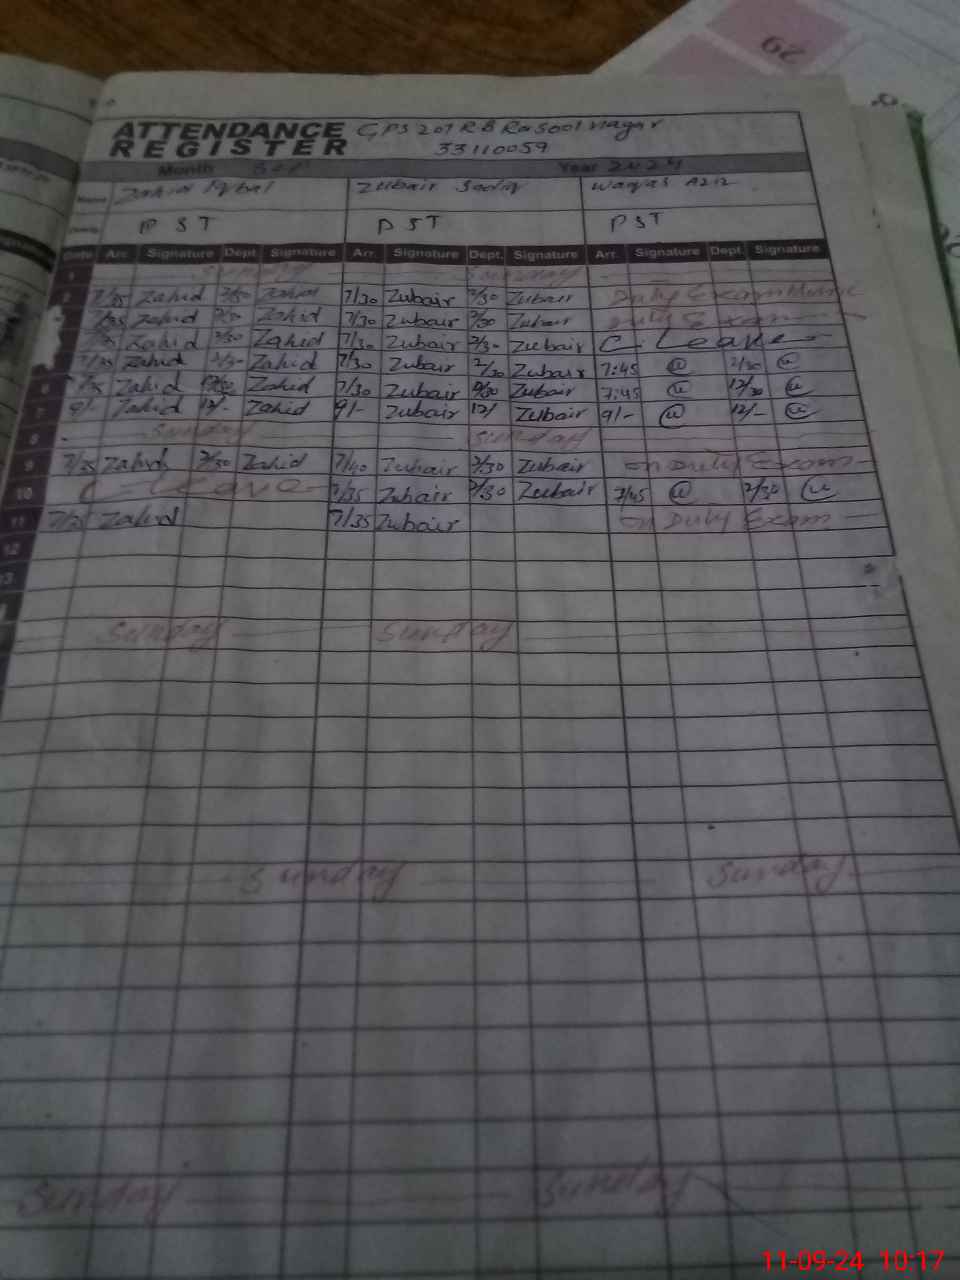 29
ATTENDANCE GPS 207 RB Rasool nagar
REGISTER 33110059
Month Year 2024
Name Zahid Iqbal Zubair Sadiq Waqas Aziz
PST PST PST
Date Arr. Signature Dept. Signature Arr. Signature Dept. Signature Arr. Signature Dept. Signature
1 Sunday Sunday
2 7/25 Zahid 2/30 Zahid 7/30 Zubair 2/30 Zubair Duty Exam
7/25 Zahid 2/30 Zahid 7/30 Zubair 2/30 Zubair Duty Exam
7/25 Zahid 2/30 Zahid 7/30 Zubair 2/30 Zubair C. Leave
7/25 Zahid 2/30 Zahid 7/30 Zubair 2/30 Zubair 7:45 2/30
6 7/25 Zahid 12/30 Zahid 7/30 Zubair 12/30 Zubair 7:45 12/30
7 9/- Zahid 12/- Zahid 9/- Zubair 12/ Zubair 9/- 12/-
8 Sunday Sunday
9 7/25 Zahid 2/30 Zahid 7/40 Zubair 2/30 Zubair on Duty Exam
10 C Leave 7/35 Zubair 2/30 Zubair 7/45 2/30
11 7/25 Zahid 7/35 Zubair on Duty Exam
12
13
Sunday Sunday
Sunday Sunday
Sunday Sunday
11-09-24 10:17